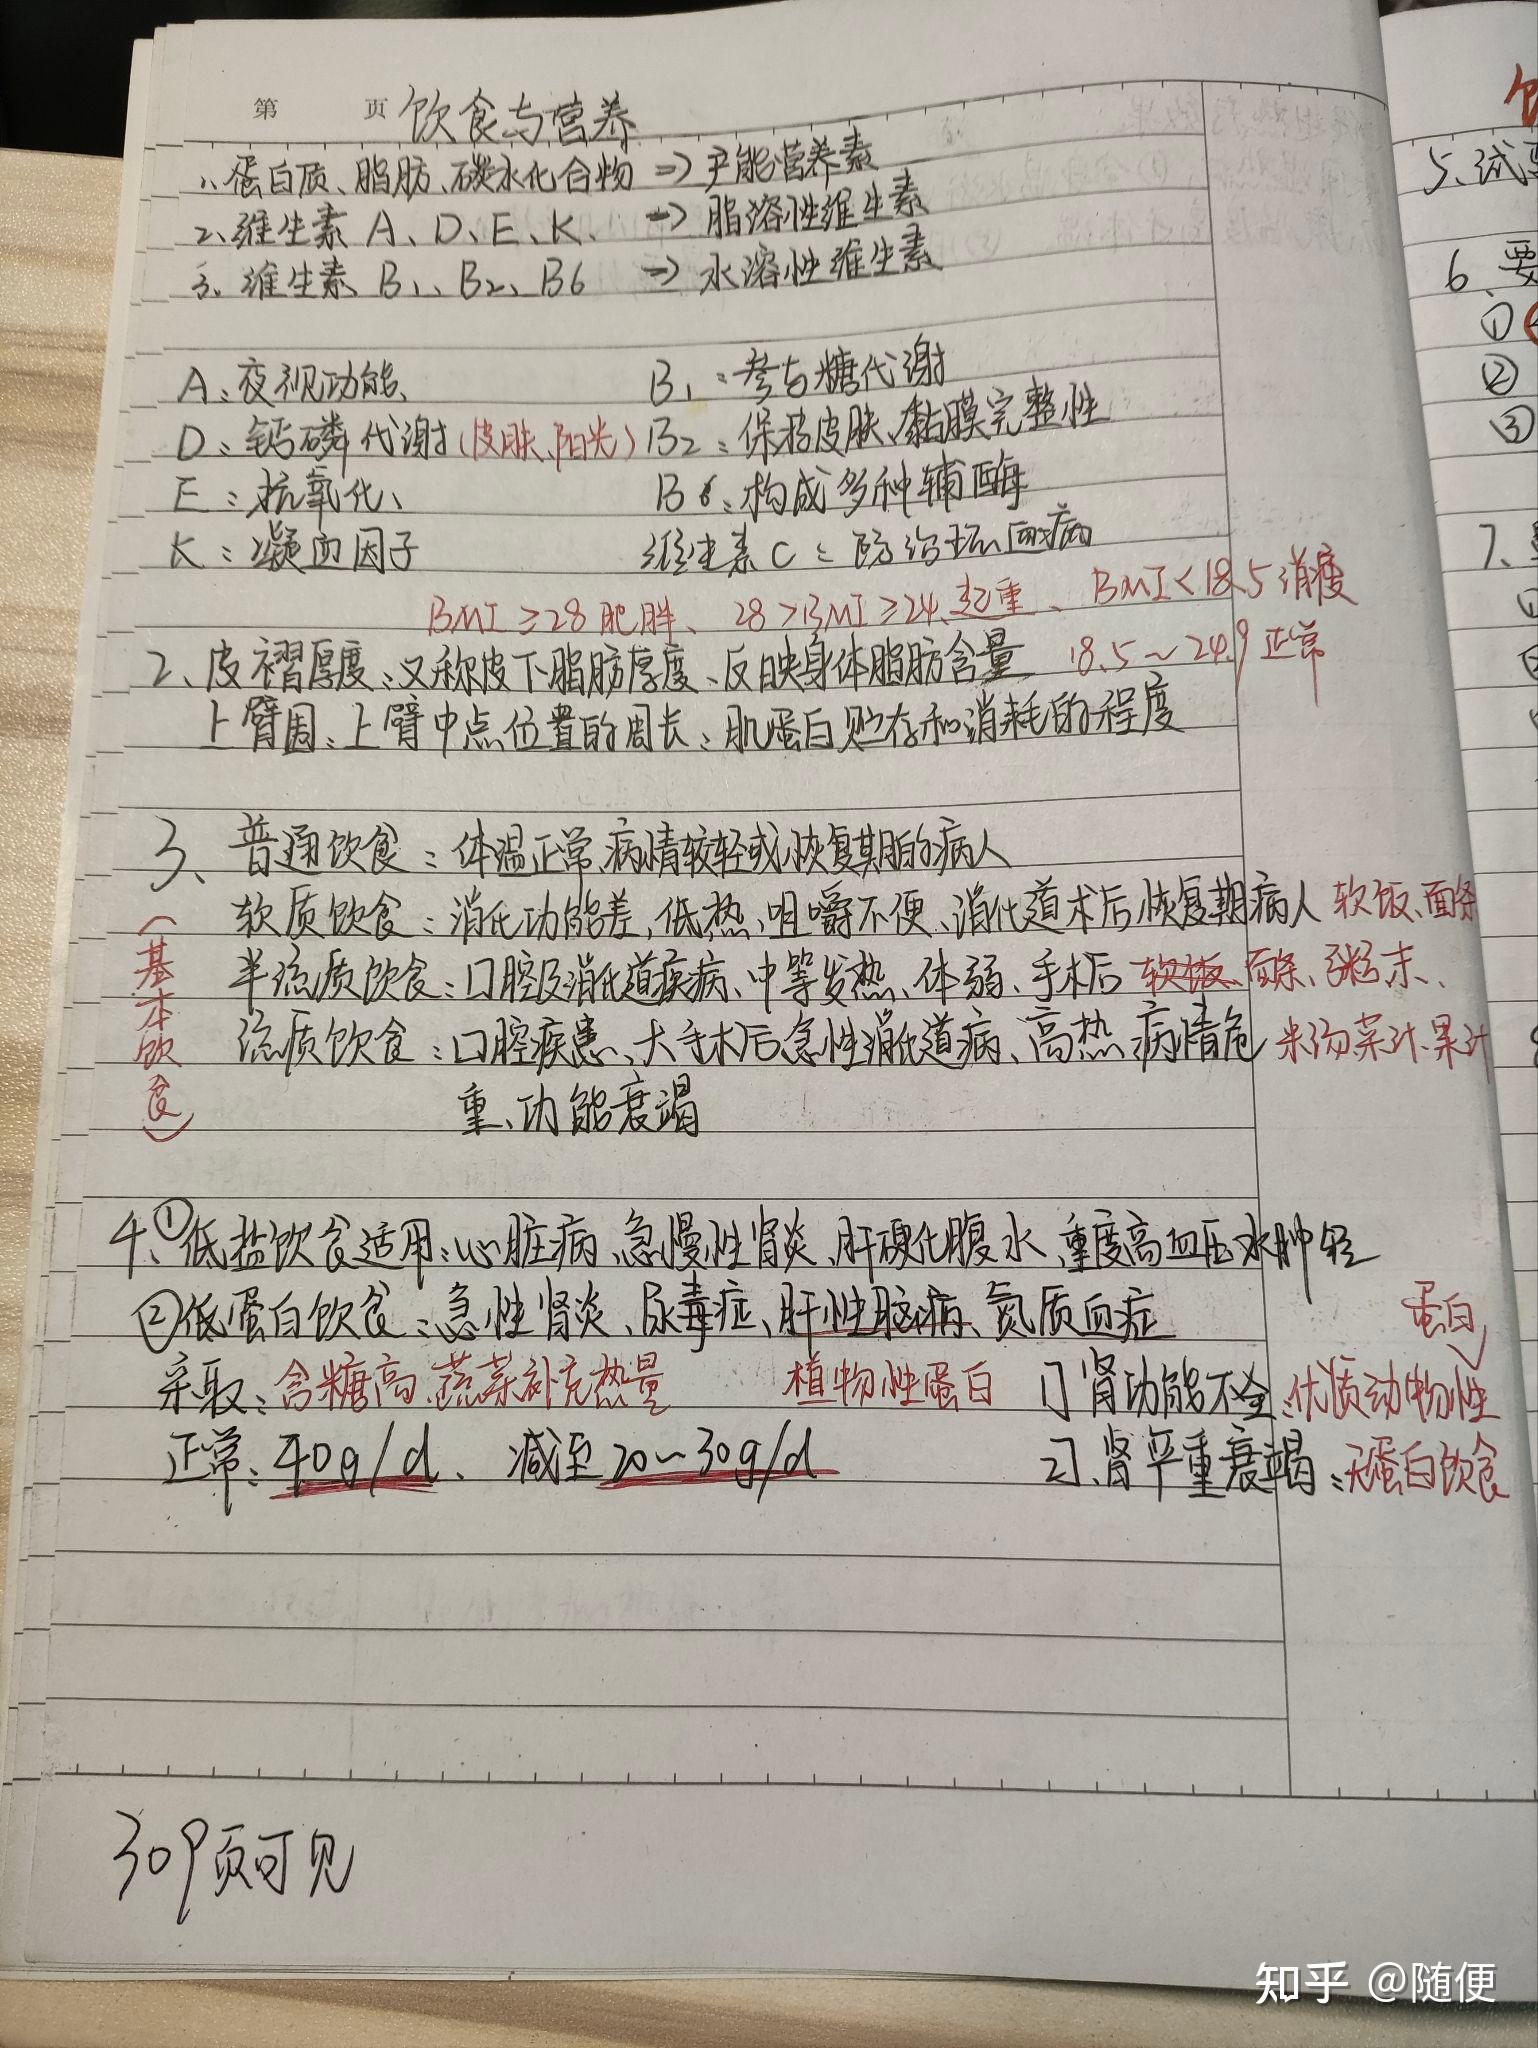 第 页 饮食与营养
1、蛋白质、脂肪、碳水化合物 => 产能营养素
2、维生素 A、D、E、K、 => 脂溶性维生素
3、维生素 B1、B2、B6 => 水溶性维生素
A：夜视功能、 B1：参与糖代谢
D：钙磷代谢(皮肤、阳光) B2：保持皮肤、黏膜完整性
E：抗氧化、 B6：构成多种辅酶
K：凝血因子 维生素C：防治坏血病
BMI≥28 肥胖、 28>BMI≥24、超重、 BMI<18.5 消瘦
2、皮褶厚度：又称皮下脂肪厚度、反映身体脂肪含量 18.5～24.9 正常
上臂围：上臂中点位置的周长：肌蛋白贮存和消耗的程度
3、普通饮食：体温正常、病情较轻或恢复期的病人
软质饮食：消化功能差、低热、咀嚼不便、消化道术后恢复期病人 软饭、面条
(基本饮食)
半流质饮食：口腔及消化道疾病、中等发热、体弱、手术后 软饭、面条、粥、末、
流质饮食：口腔疾患、大手术后急性消化道病、高热 病情危 米汤菜汁、果汁
重、功能衰竭
4、①低盐饮食适用：心脏病、急慢性肾炎、肝硬化腹水、重度高血压水肿轻
②低蛋白饮食：急性肾炎、尿毒症、肝性脑病、氮质血症
蛋白
亲取：含糖高、蔬菜补充热量 植物性蛋白 1]肾功能不全：优质动物性
正常：40g/d、 减至20～30g/d 2]、肾严重衰竭：无蛋白饮食
309页可见
5、试
6、要
①
②
③
7、
知乎 @随便